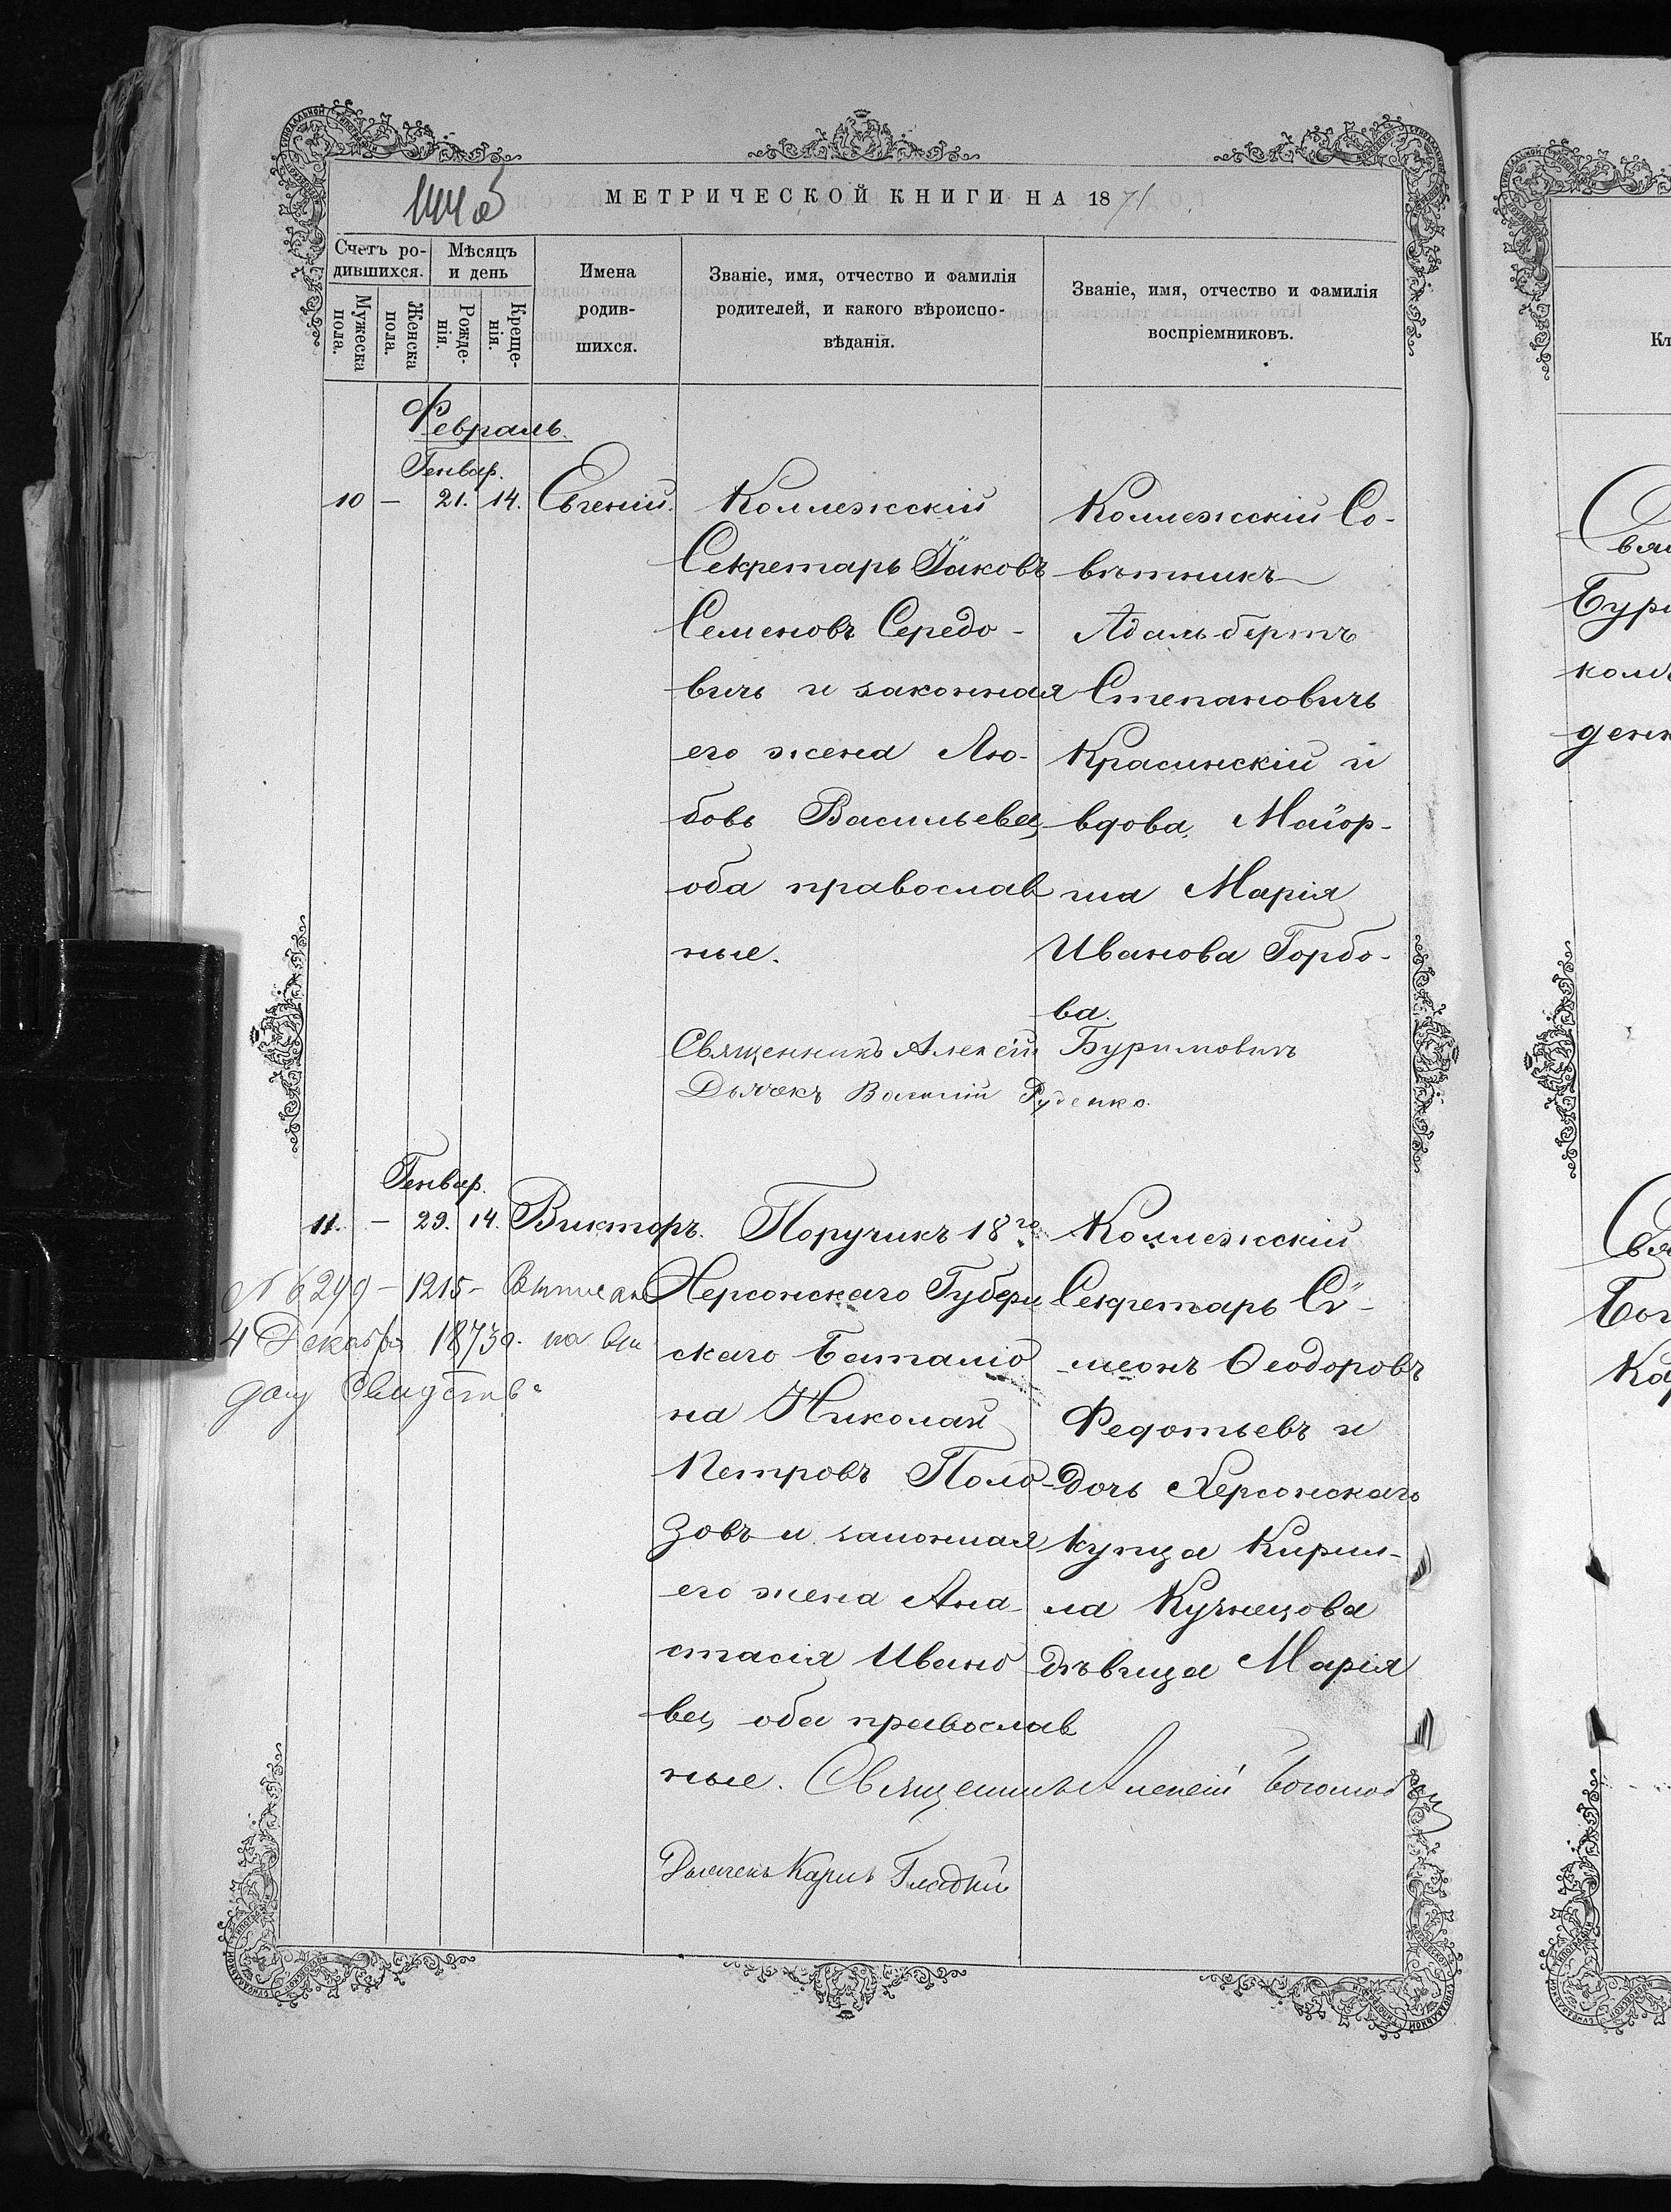 МЕТРИЧЕСКОЙ КНИГИ НА 1871
Счетъ ро-
дившихся.
Мѣсяцъ
и день
Мужеска
пола.
Женска
пола.
Рожде-
нія.
Креще-
нія.
Имена
родив-
шихся.
Званіе, имя, отчество и фамилія
родителей, и какого вѣроиспо-
вѣданія.
Званіе, имя, отчество и фамилія
воспріемниковъ.
Февраль.
Генвар.
10 — 21. 14. Евгеній.
Коллежскій
Секретарь Іаковъ
Семеновъ Середо-
вичь и законная
его жена Лю-
бовь Васильева,
оба православ
ные.
Коллежскій Со-
вѣтникъ
Адальбертъ
Степановичь
Красинскій и
вдова Маіор-
ша Марія
Иванова Горбо-
ва.
Священникъ Алексій Буримовичъ
Дьячекъ Василій Руденко.
Генвар.
11. — 29. 14. Викторъ.
Поручикъ 18го
Херсонскаго Губерн
скаго Баталіо
на Николай
Петровъ Поло-
зовъ и законная
его жена Ана-
стасія Ивано
ва, оба православ
ные.
Коллежскій
Секретарь Сѵ-
меонъ Ѳеодоровъ
Федотьевъ и
дочь Херсонскаго
купца Кирил-
ла Кузнецова
дѣвица Марія
N 6249 — 1215 —
4 Декабря 1873 г. на вы
дачу Свидѣтель
Священникъ Алексій
Дьячекъ Карпъ Гладкій